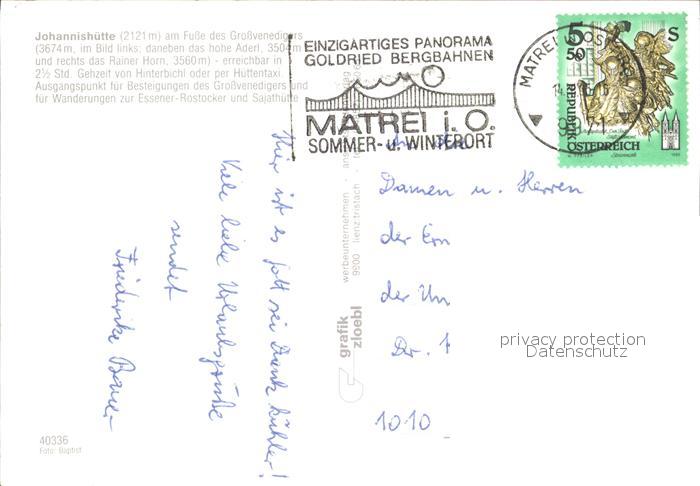 Johannishütte (2121 m) am Fuße des Großvenedigers
(3674 m, im Bild links; daneben das hohe Aderl, 3504 m
und rechts das Rainer Horn, 3560 m) - erreichbar in
2½ Std. Gehzeit von Hinterbichl oder per Hüttentaxi.
Ausgangspunkt für Besteigungen des Großvenedigers und
für Wanderungen zur Essener-Rostocker und Sajathütte
EINZIGARTIGES PANORAMA
GOLDRIED BERGBAHNEN
MATREI i. O.
SOMMER- u. WINTERORT
MATREI IN OSTTIROL
9971
5 50 S
REPUBLIK
ÖSTERREICH
Hier ist es Gott sei Dank kühler!
Viele liebe Urlaubsgrüße
sendet
Friederike Bauer
werbeunternehmen
9900 lienz, tristach
grafik
zloebl
An die
Damen u. Herren
der
der
Dr.
1010
privacy protection
Datenschutz
40336
Foto: Baptist